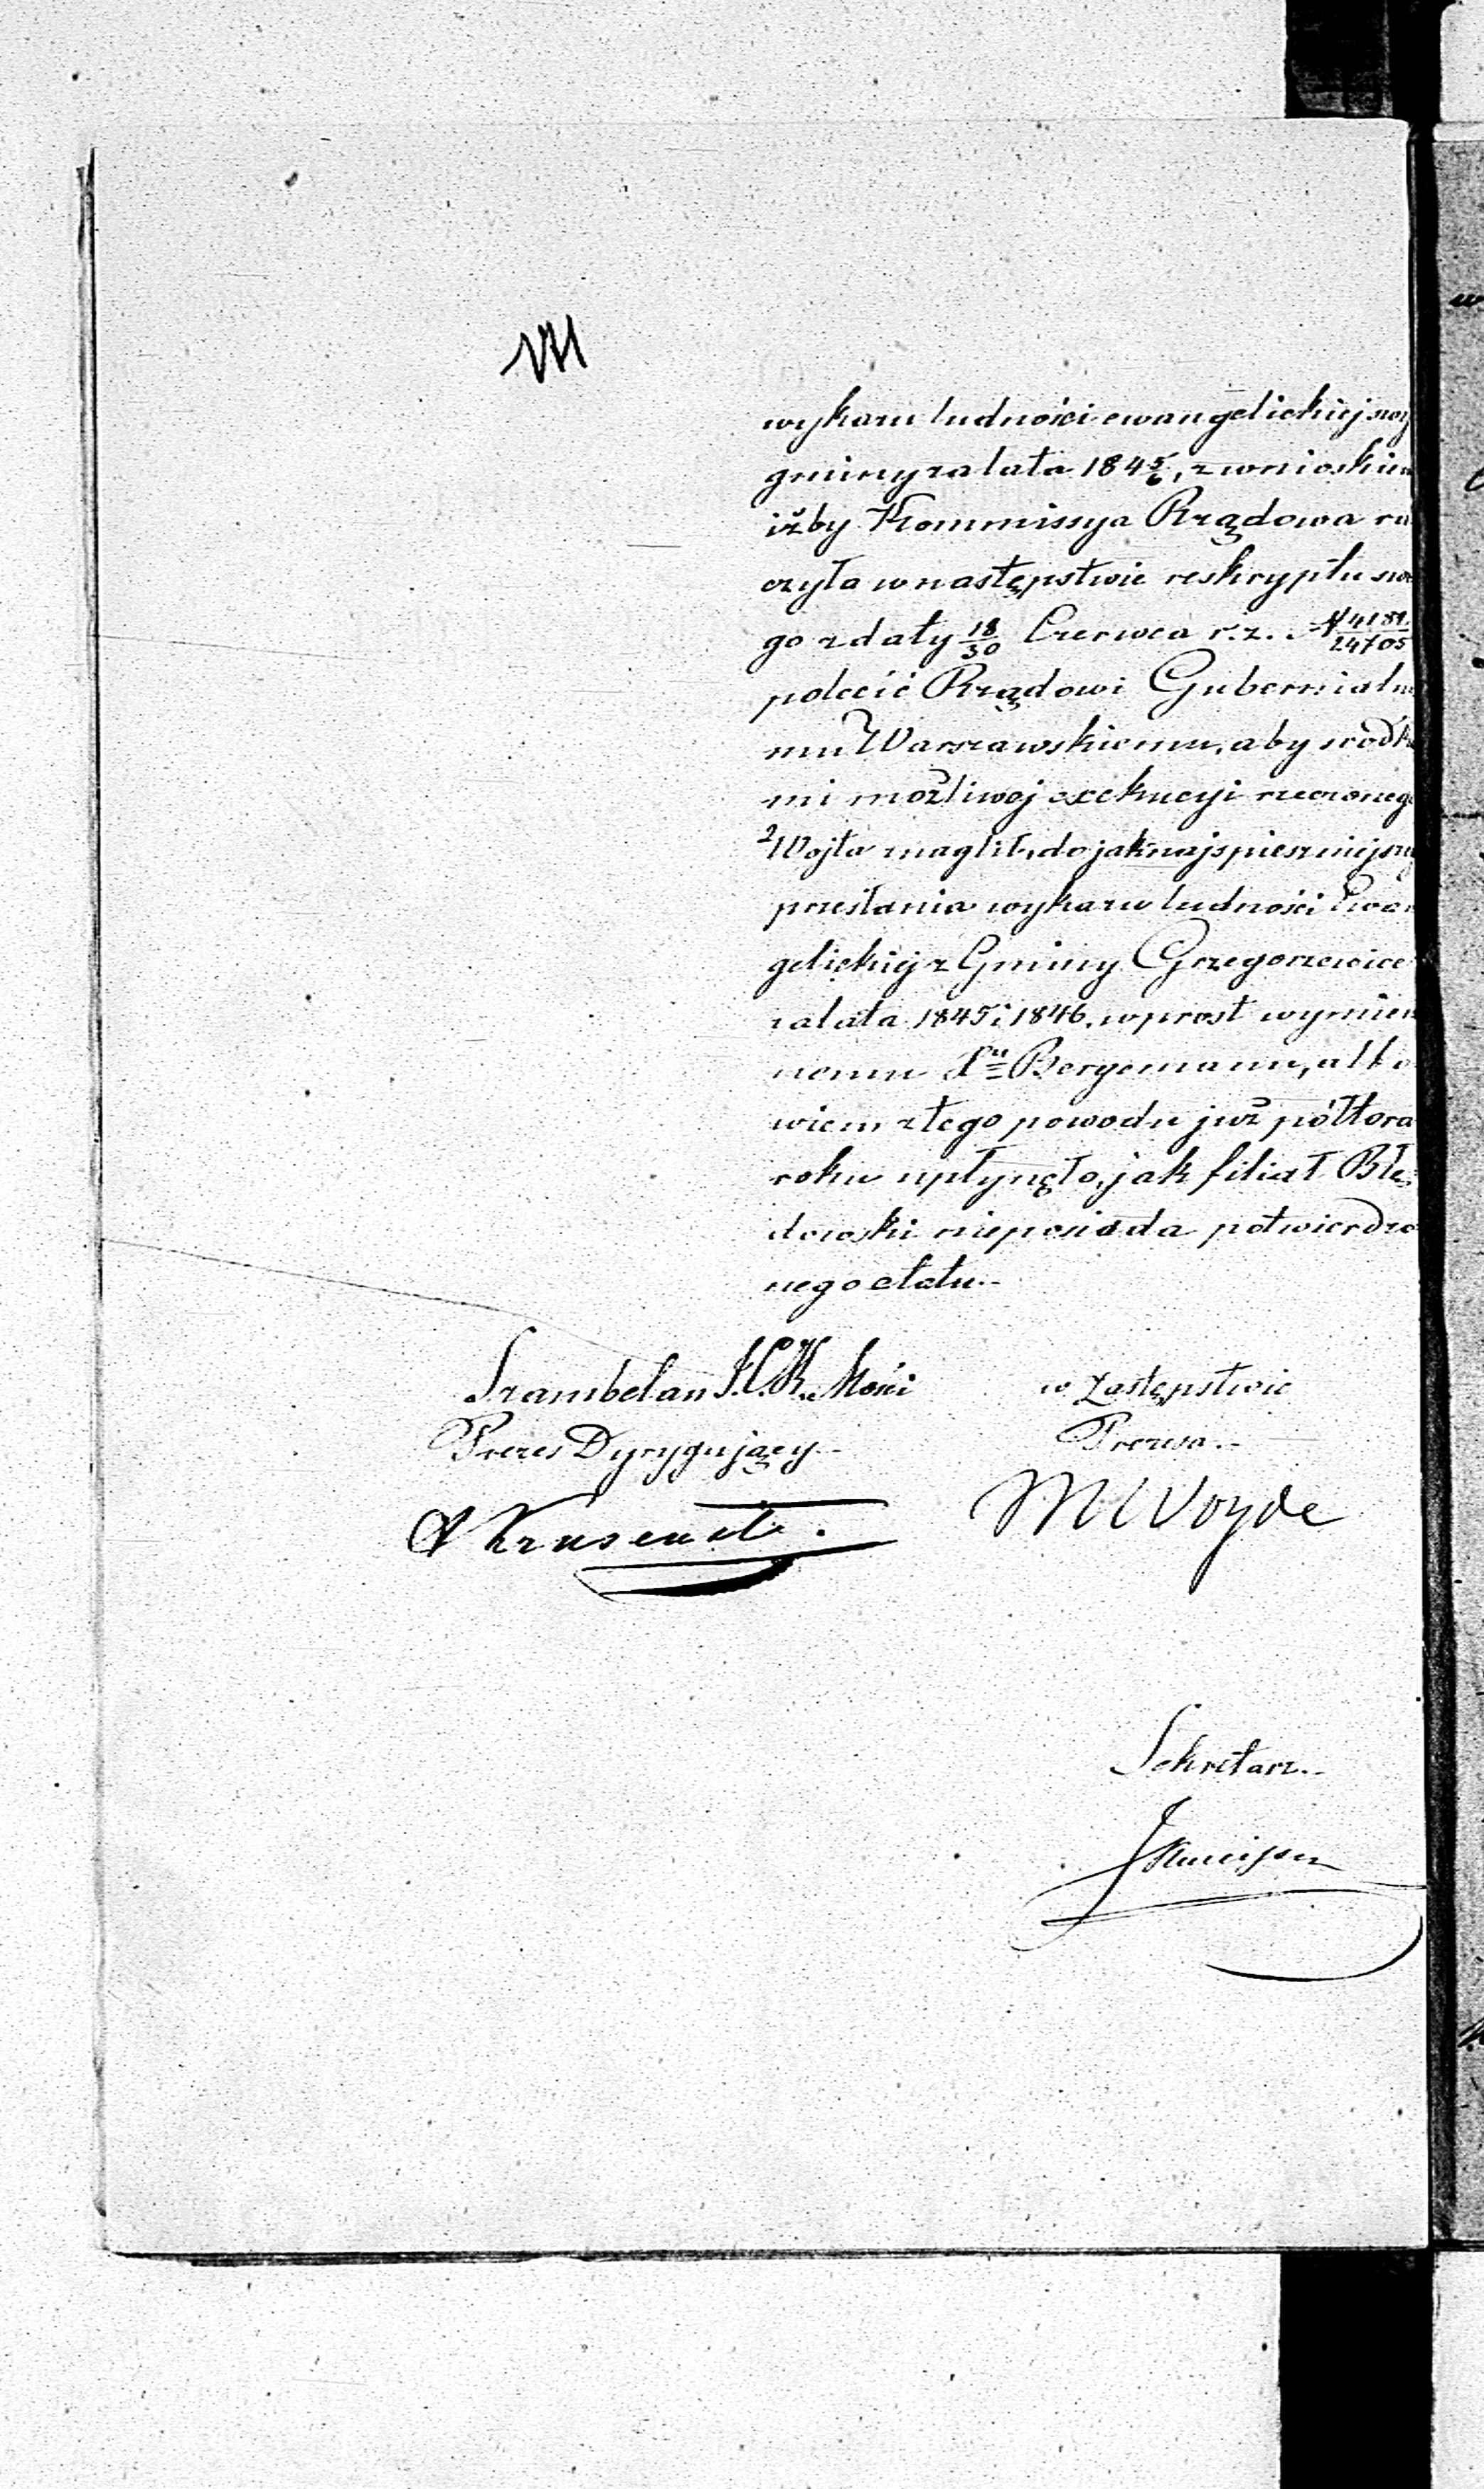 VII
wykazu ludności ewangelickiej swoj
gminy za lata 184 5/6, z wnioskiem
iżby Kommissya Rządowa ra
czyła w następstwie reskryptu swe
go z daty 18/30 Czerwca r. z. N 4181/24705
polecić Rządowi Gubernialne
mu Warszawskiemu, aby środka
mi możliwej exekucyi rzeczonego
Wojta naglił, do jaknajspieszniejszeg
przesłania wykazu ludności Ewan
gelickiej z Gminy Grzegorzewice
za lata 1845 i 1846. wprost wymien
nemu Bergemann, albo
wiem z tego powodu już półtora
roku upłynęło, jak filiał Błę,
dowski nieposiada potwierdzo
nego etatu.-
Szambelan J.C.K. Mości
Prezes Dyrygujący.-
w Zastępstwie
Prezesa.-
M Woyde
Sekretarz.-